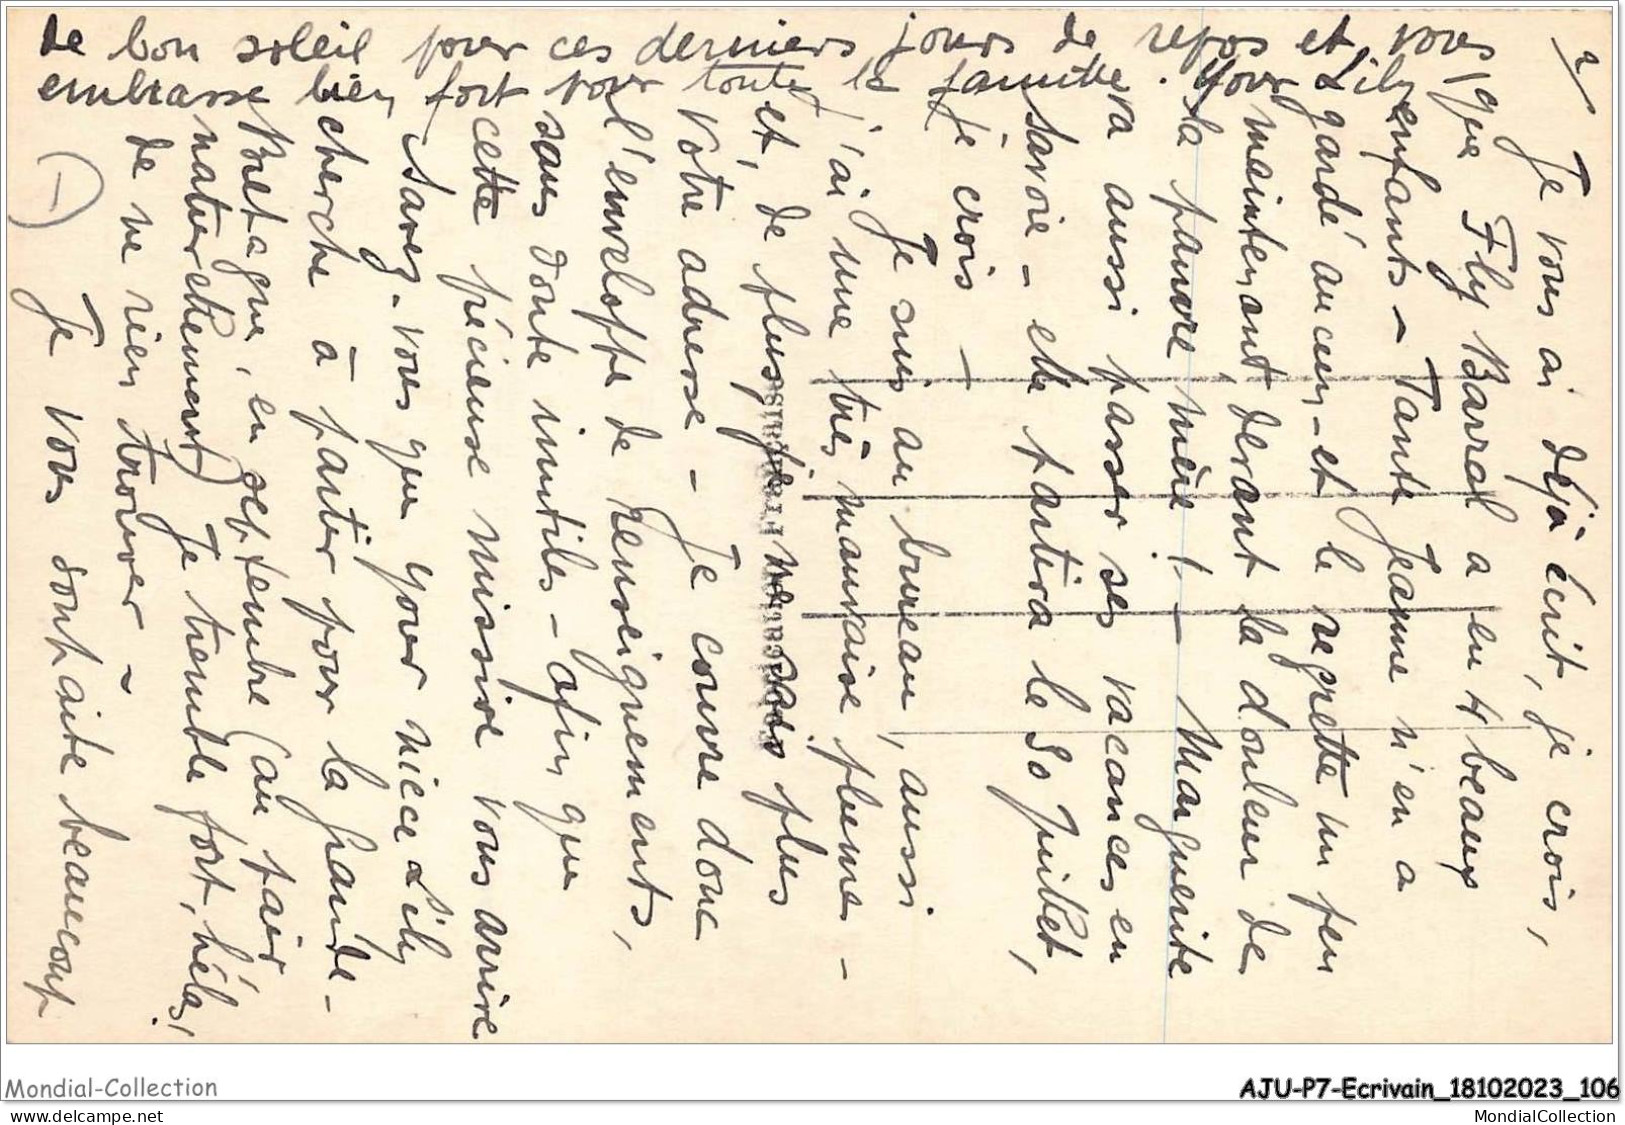 2/
Je vous ai déjà écrit, je crois,
que Fly Barral a eu 4 beaux
enfants - Tante Jeanne n'en a
gardé aucun - et le regrette un peu
maintenant devant la douleur de
la pauvre mère ! - Marguerite
va aussi passer ses vacances en
Savoie - elle partira le 30 juillet,
je crois -
Je suis au bureau, aussi
j'ai une très mauvaise plume -
et, de plus, je ne sais plus
votre adresse - Je couvre donc
l'enveloppe de renseignements,
sans doute inutiles - afin que
cette précieuse missive vous arrive
Savez-vous que your niece Lily
cherche à partir pour la Grande-
Bretagne, en septembre (au pair
naturellement) Je tremble fort, hélas,
de ne rien trouver -
(-) Je vous souhaite beaucoup
de bon soleil pour ces derniers jours de repos et vous
embrasse bien fort vous toute la famille. Your Lily
Mondial-Collection
AJU-P7-Ecrivain_18102023_106
www.delcampe.net
MondialCollection